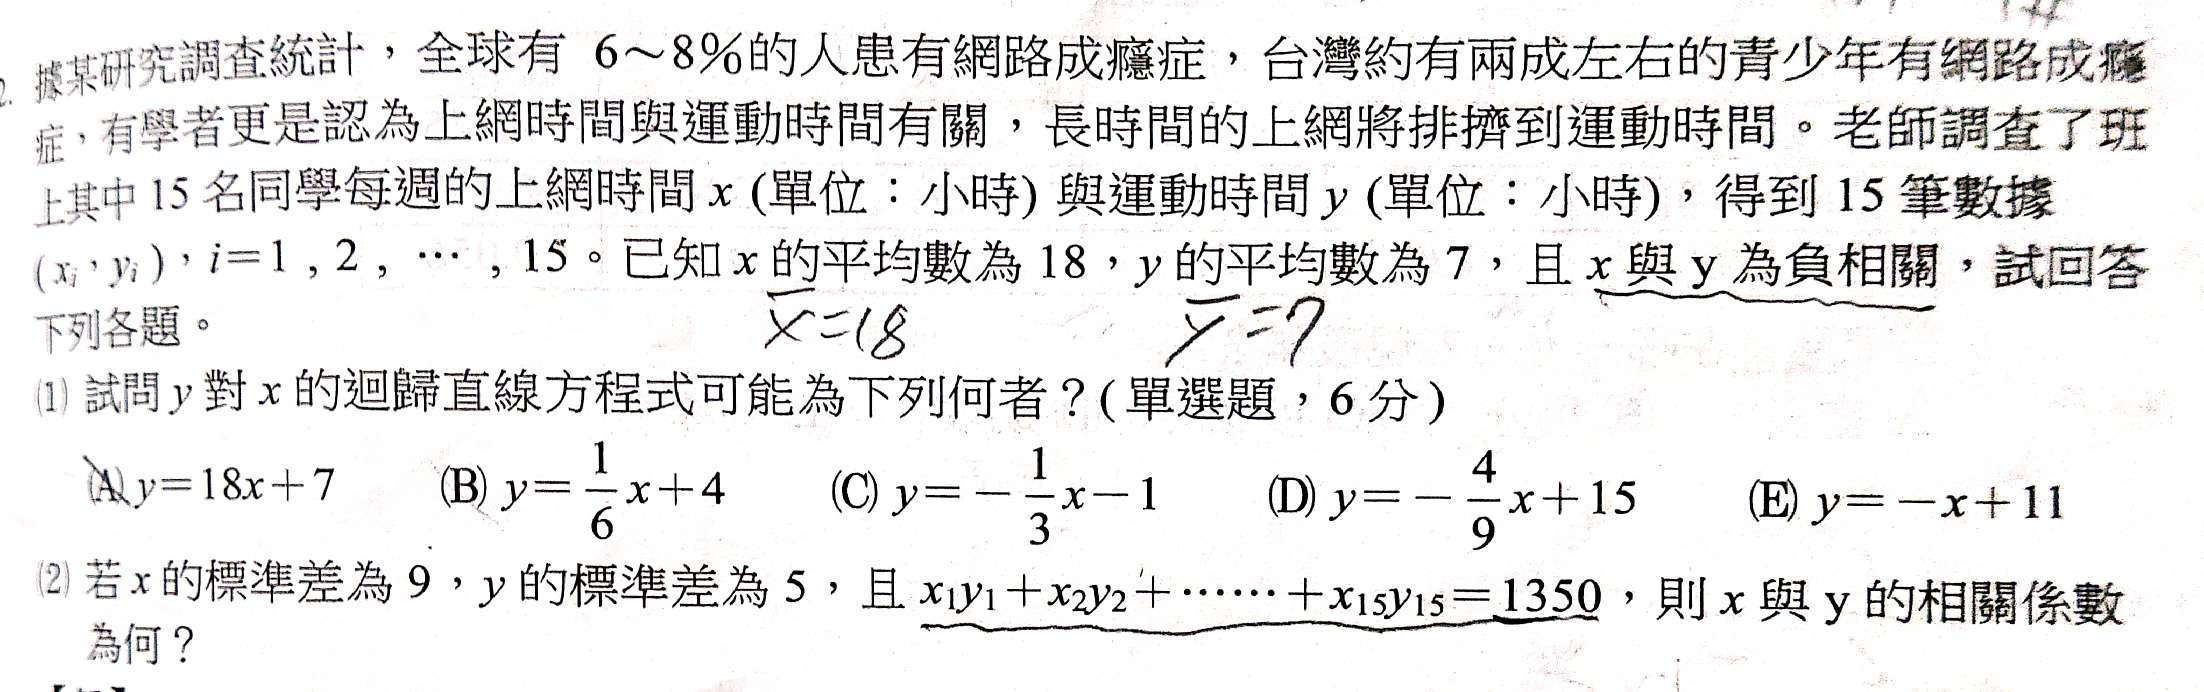 2. 據某研究調查統計，全球有 6～8%的人患有網路成癮症，台灣約有兩成左右的青少年有網路成癮
症，有學者更是認為上網時間與運動時間有關，長時間的上網將排擠到運動時間。老師調查了班
上其中 15 名同學每週的上網時間 x (單位：小時) 與運動時間 y (單位：小時)，得到 15 筆數據
(xᵢ，yᵢ)，i＝1 , 2 , … , 15。已知 x 的平均數為 18，y 的平均數為 7，且 x 與 y 為負相關，試回答
x̄=18 ȳ=7
下列各題。
⑴ 試問 y 對 x 的迴歸直線方程式可能為下列何者？(單選題，6 分)
(A) y＝18x＋7 (B) y＝1/6 x＋4 (C) y＝－1/3 x－1 (D) y＝－4/9 x＋15 (E) y＝－x＋11
⑵ 若 x 的標準差為 9，y 的標準差為 5，且 x₁y₁＋x₂y₂＋……＋x₁₅y₁₅＝1350，則 x 與 y 的相關係數
為何？